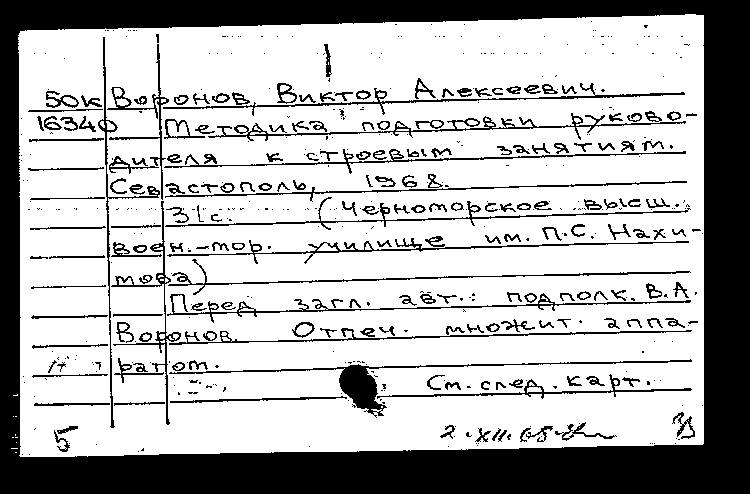 50к Воронов, Виктор Алексеевич.
16340 Методика подготовки руково-
дителя к строевым занятиям.
Севастополь, 1968.
31с. (Черноморское высш.
воен.-мор. училище им. П.С. Нахи-
мова)
Перед загл. авт.: подполк. В.А.
Воронов. Отпеч. множит. аппа-
ратом.
См. след. карт.
5 2.XII.68